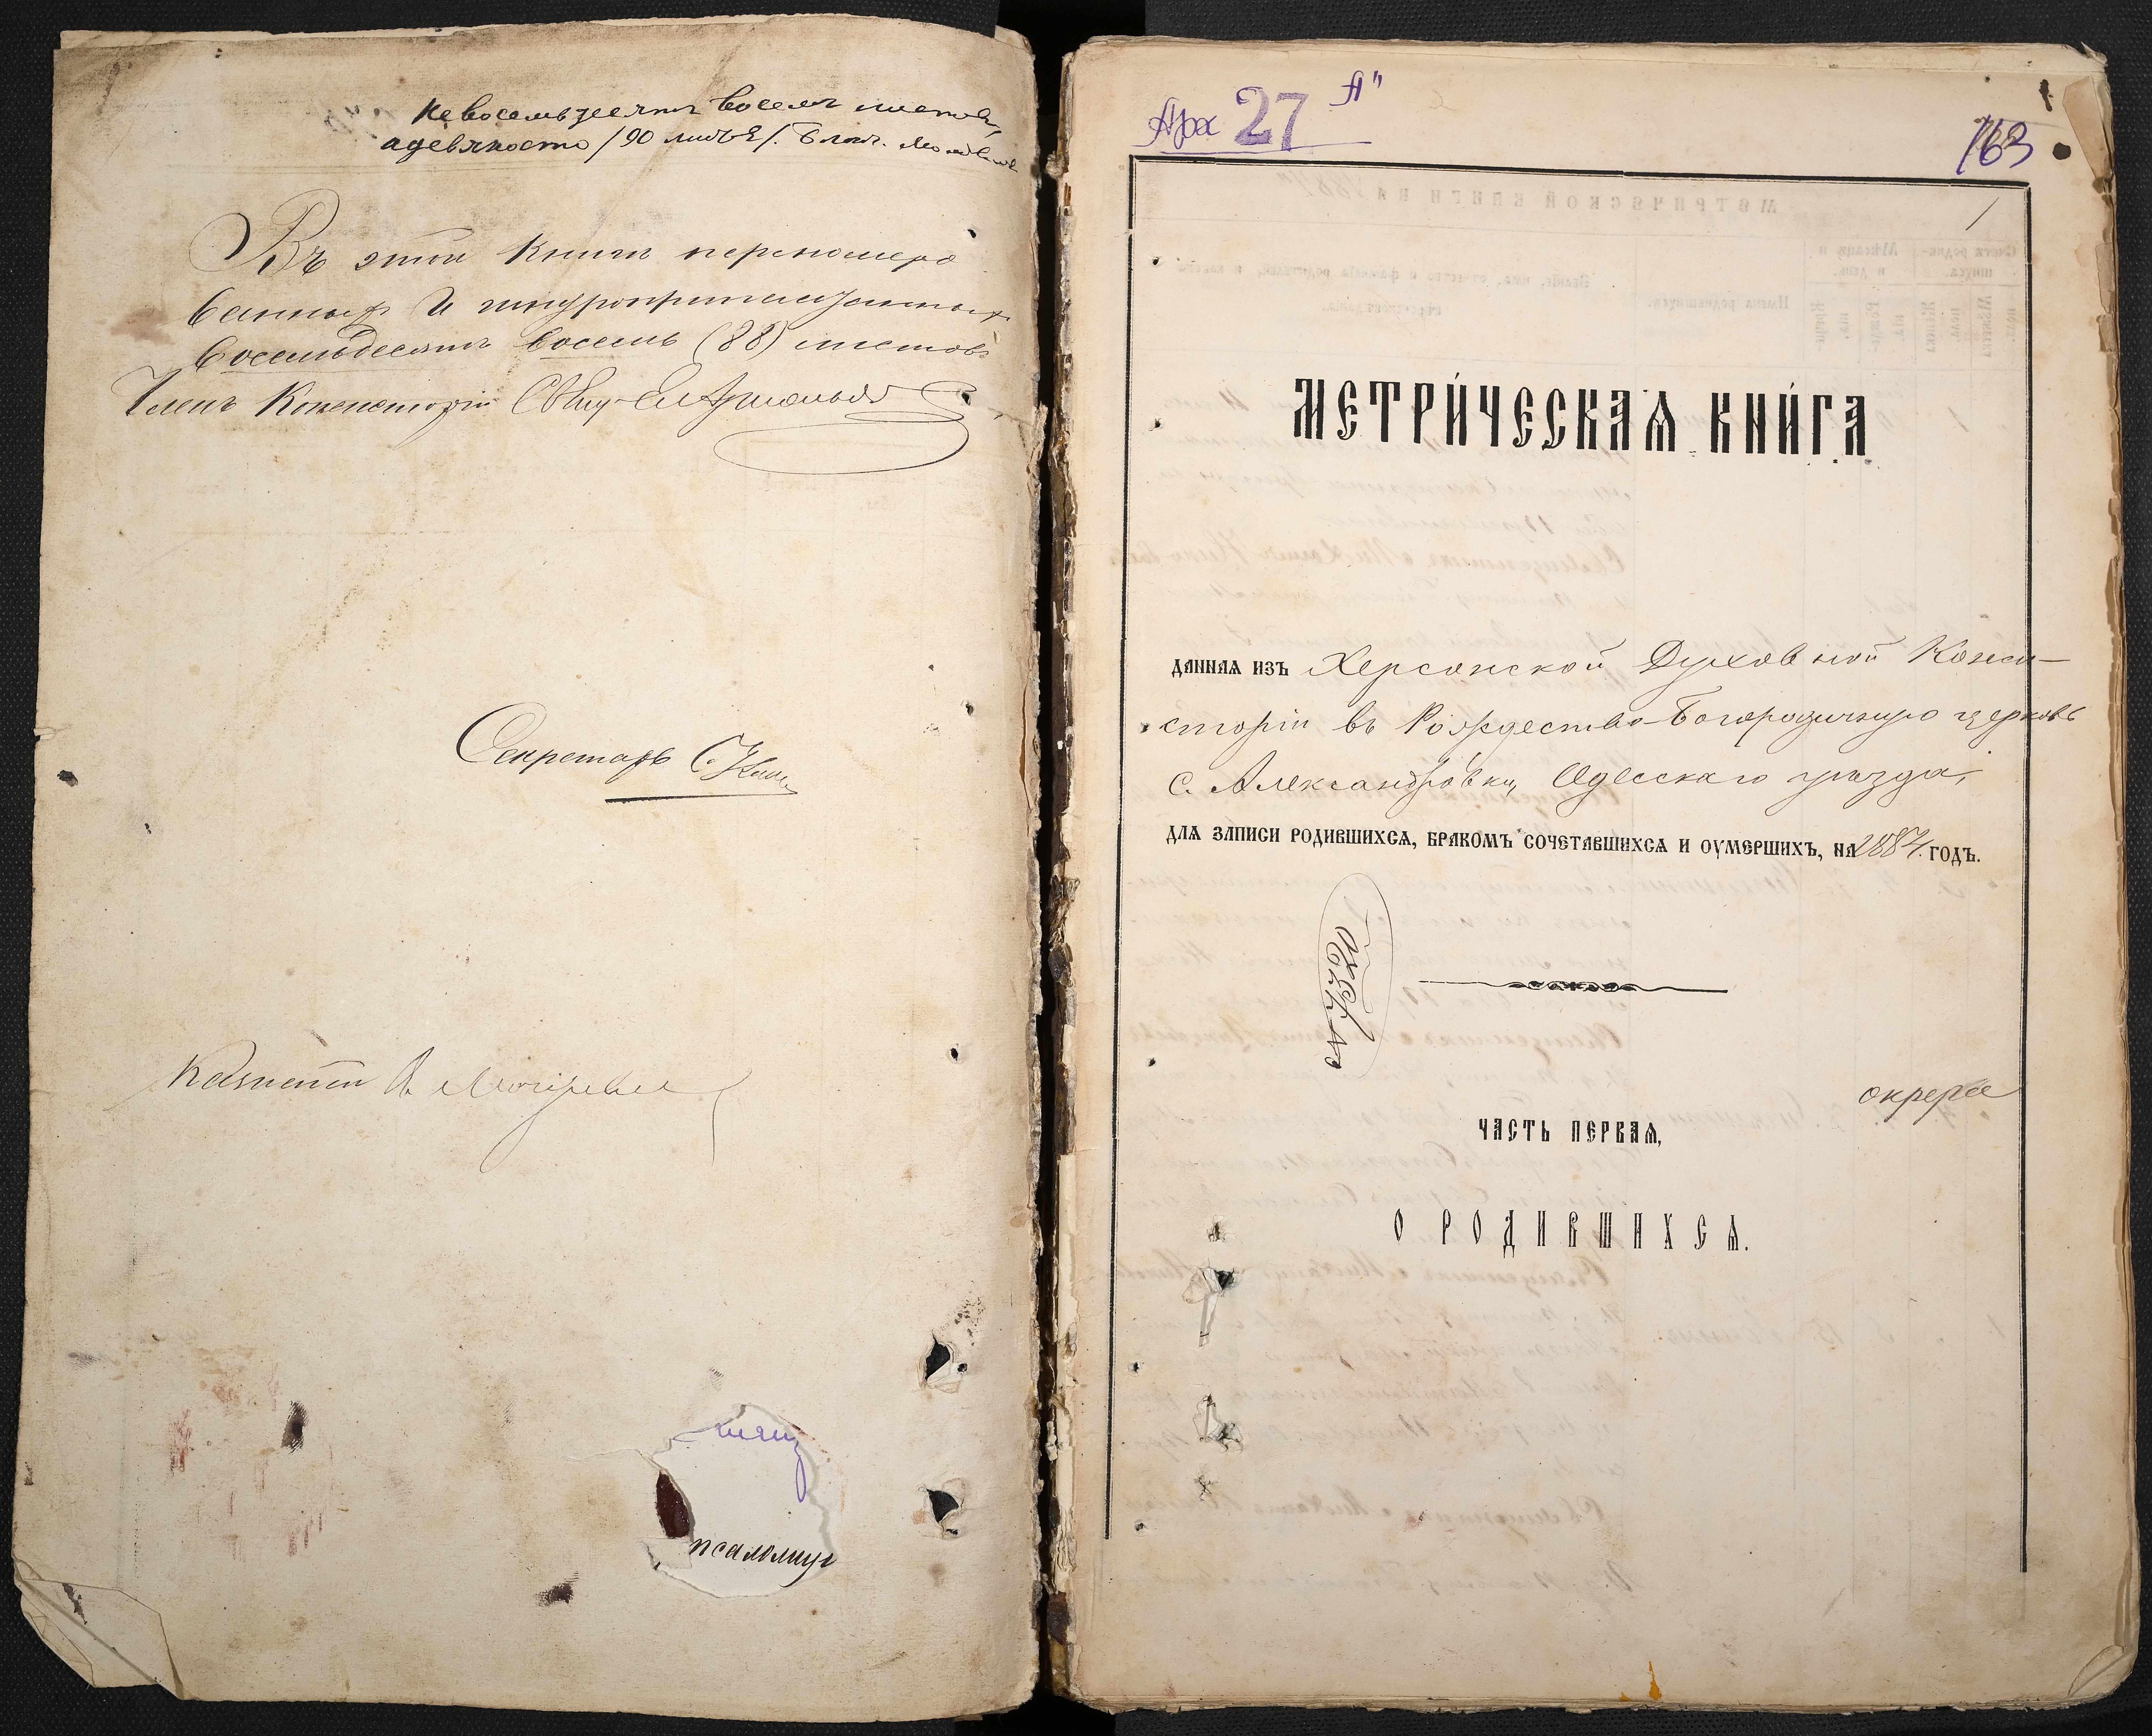 не восемьдесятъ восемь листовъ,
а девяносто /90 листъ/. Благ.
Въ этой книгѣ перенумеро
ванныхъ и шнуроприпечатанныхъ
восемьдесятъ восемь (88) листовъ
Членъ Консисторіи Свящ.
Секретарь
псаломщ
Арх 27 "А"
163
1
МЕТРИ́ЧЕСКАѦ КНИ́ГА
ДАННАѦ ИЗЪ Херсонской Духовной Конси-
сторіи въ Рождество-Богородичную церковь
с. Александровки, Одесскаго уѣзда,
ДЛѦ ЗАПИСИ РОДИВШИХСѦ, БРАКОМЪ СОЧЕТАВШИХСѦ И ОУМЕРШИХЪ, НА 1884 ГОДЪ.
ЧАСТЬ ПЕРВАѦ,
О РОДИВШИХСѦ.